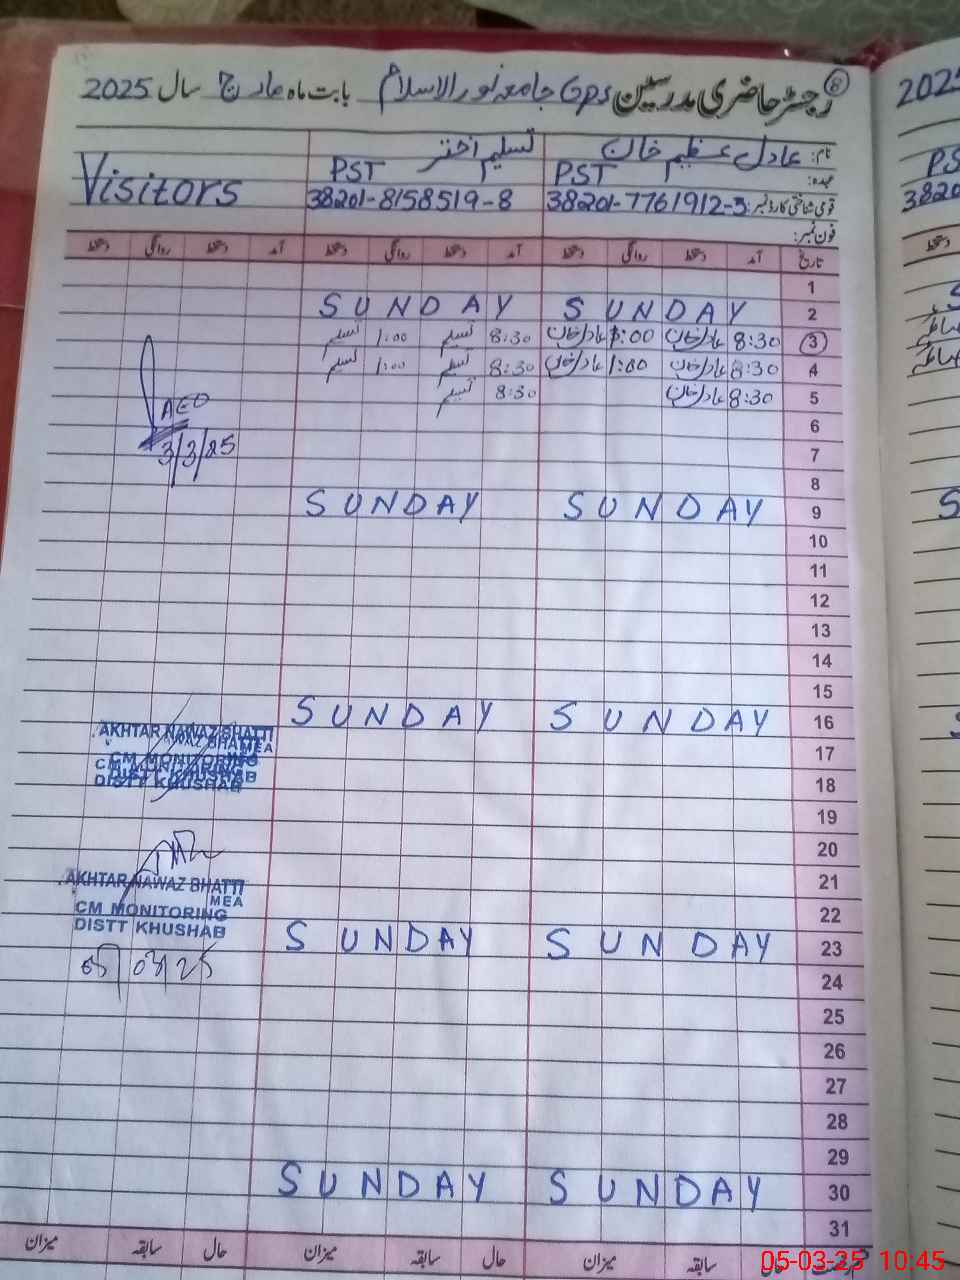 رجسٹر حاضری مدرسین Gps جامعہ نور الاسلام بابت ماہ مارچ سال 2025
نام: عادل عظیم خان تسلیم اختر
عہدہ: PST PST Visitors
قومی شناختی کارڈ نمبر: 38201-7761912-3 38201-8158519-8
فون نمبر:
تاریخ آمد دستخط روانگی دستخط آمد دستخط روانگی دستخط آمد دستخط روانگی دستخط
1
2 SUNDAY SUNDAY
3 8:30 عادل خان 1:00 عادل خان 8:30 تسلیم 1:00 تسلیم
4 8:30 عادل خان 1:00 عادل خان 8:30 تسلیم 1:00 تسلیم
5 8:30 عادل خان 8:30 تسلیم
AEO
3/3/25
6
7
8
9 SUNDAY SUNDAY
10
11
12
13
14
15
16 SUNDAY SUNDAY
AKHTAR NAWAZ BHATTI
MEA
CM MONITORING
DISTT KHUSHAB
17
18
19
20
21
22
23 SUNDAY SUNDAY
AKHTAR NAWAZ BHATTI
MEA
CM MONITORING
DISTT KHUSHAB
05/03/25
24
25
26
27
28
29
30 SUNDAY SUNDAY
31
حال سابقہ میزان حال سابقہ میزان حال سابقہ میزان
2025
PS
38201
05-03-25 10:45